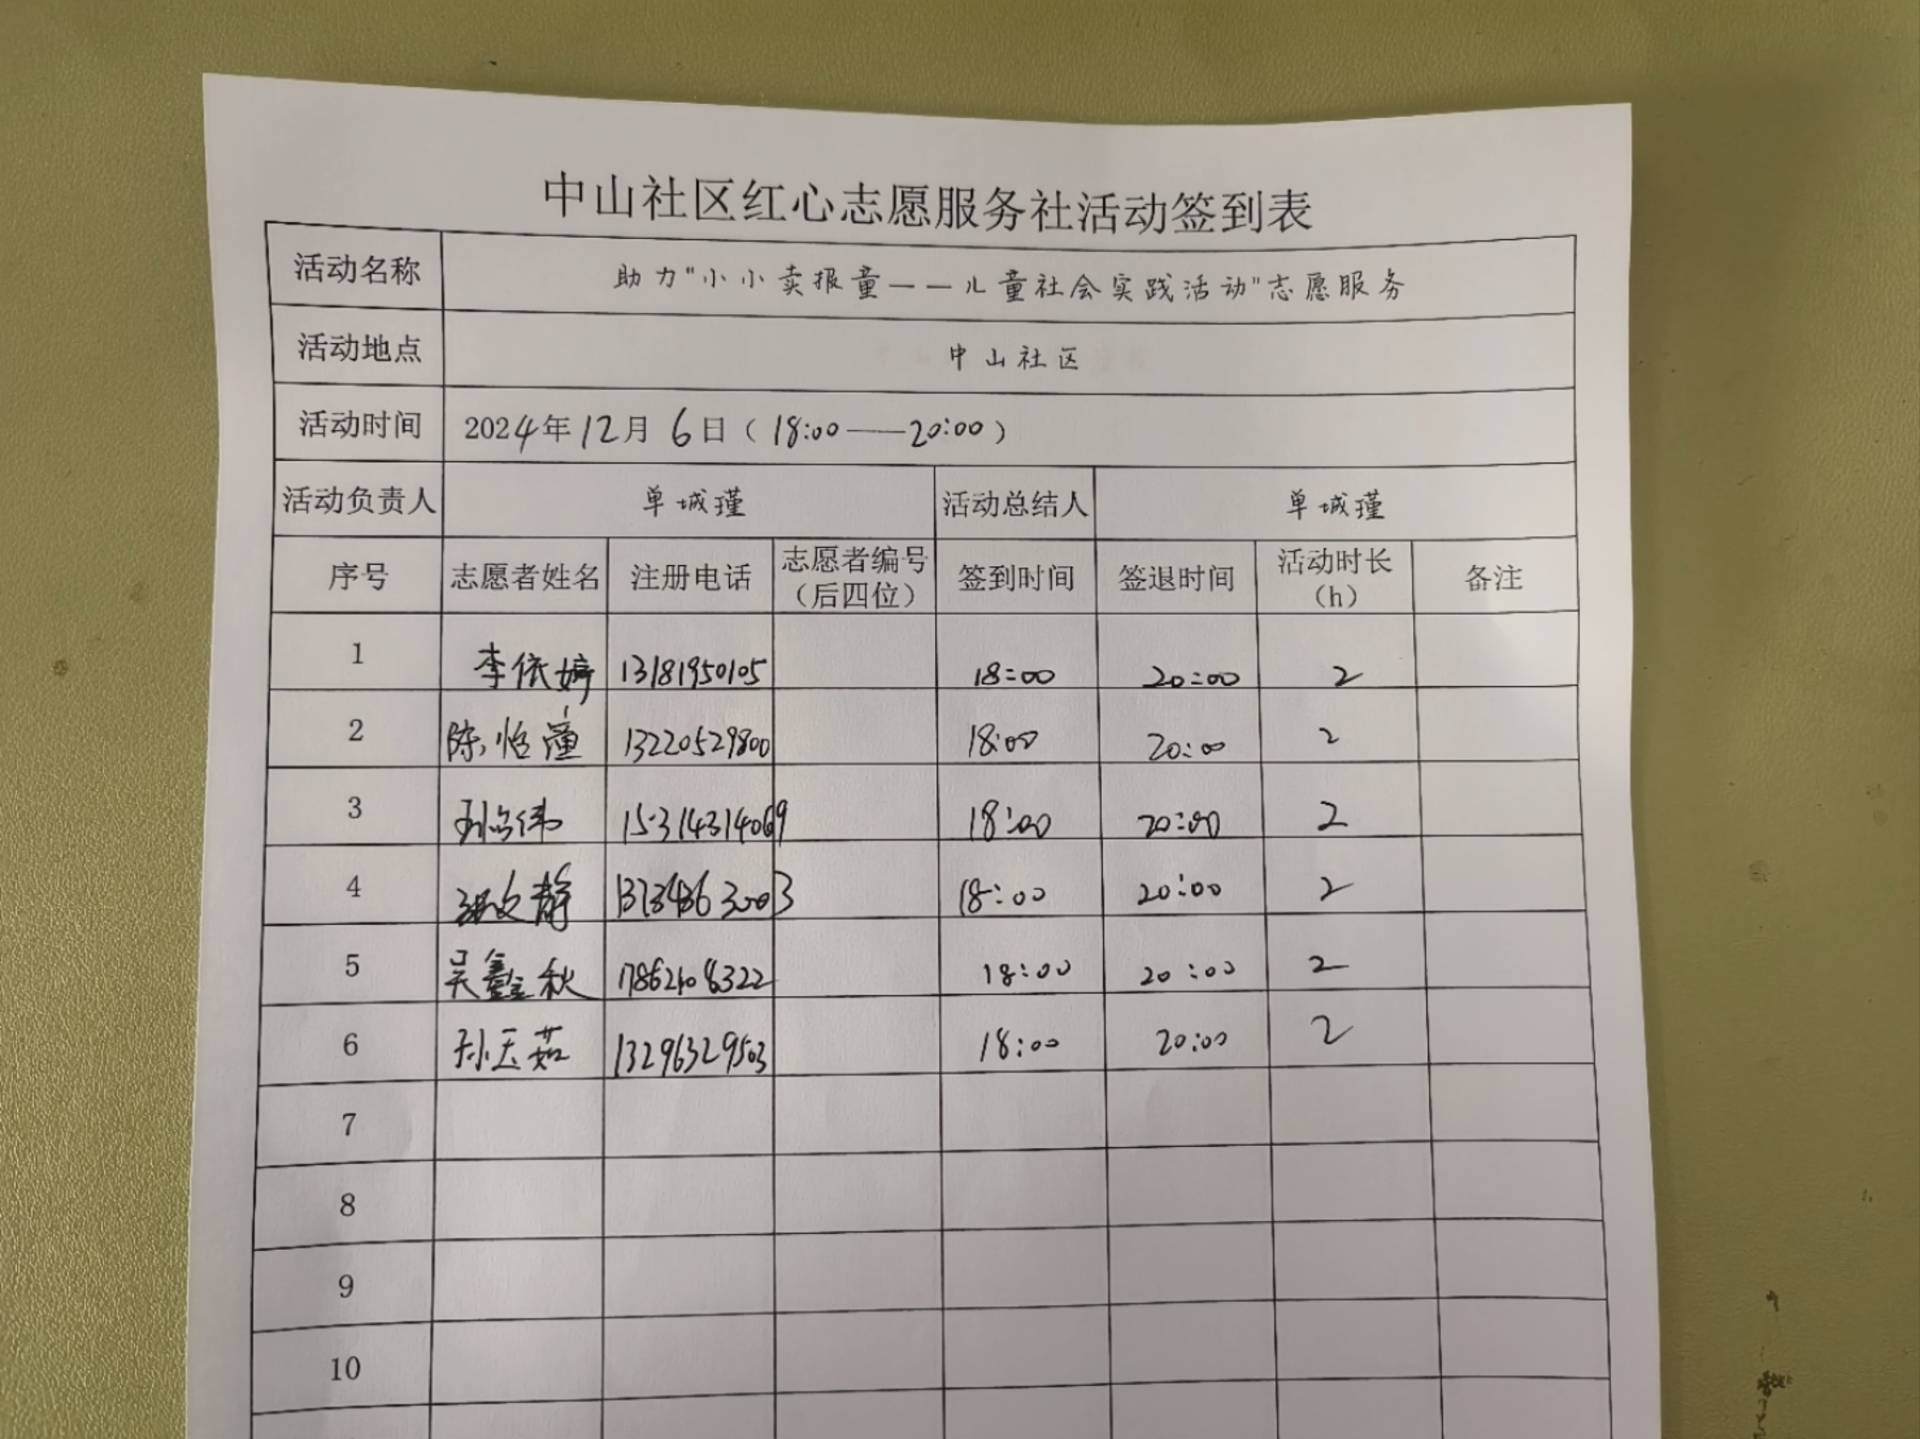 中山社区红心志愿服务社活动签到表
活动名称 助力"小小卖报童——儿童社会实践活动"志愿服务
活动地点 中山社区
活动时间 2024年12月6日（18:00——20:00）
活动负责人 单城瑾 活动总结人 单城瑾
序号 志愿者姓名 注册电话 志愿者编号（后四位） 签到时间 签退时间 活动时长（h） 备注
1 李依婷 13181950105 18:00 20:00 2
2 陈怡潼 13220529800 18:00 20:00 2
3 15314314069 18:00 20:00 2
4 文静 18:00 20:00 2
5 吴鑫秋 18:00 20:00 2
6 孙天茹 13296329503 18:00 20:00 2
7
8
9
10